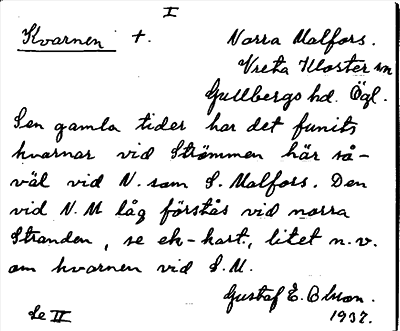 I
Kvarnen +. Norra Malfors.
Vreta Kloster sn
Gullbergs hd. Ögl.
Sen gamla tider har det funits
kvarnar vid Strömmen här så-
väl vid N. som S. Malfors. Den
vid N. M låg förstås vid norra
Stranden, se ek-kart., litet n.v.
om kvarnen vid S.M.
Gustaf E. Olson.
Se II 1937.